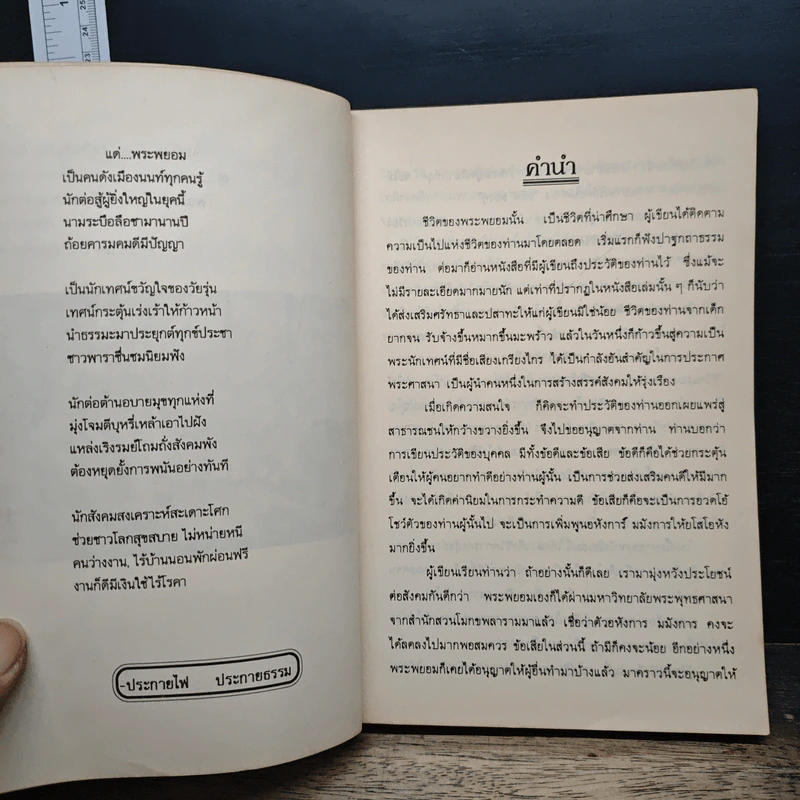 แด่....พระพยอม
เป็นคนดังเมืองนนท์ทุกคนรู้
นักต่อสู้ผู้ยิ่งใหญ่ในยุคนี้
นามระบือลือชามานานปี
ถ้อยคารมคมดีมีปัญญา
เป็นนักเทศน์ขวัญใจของวัยรุ่น
เทศน์กระตุ้นเร่งเร้าให้ก้าวหน้า
นำธรรมะมาประยุกต์ทุกข์ประชา
ชาวพาราชื่นชมนิยมฟัง
นักต่อต้านอบายมุขทุกแห่งที่
มุ่งโจมตีบุหรี่เหล้าเอาไปฝัง
แหล่งเริงรมย์โถมถั่งสังคมพัง
ต้องหยุดยั้งการพนันอย่างทันที
นักสังคมสงเคราะห์สะเดาะโศก
ช่วยชาวโลกสุขสบาย ไม่หน่ายหนี
คนว่างงาน, ไร้บ้านนอนพักผ่อนฟรี
งานก็ดีมีเงินใช้ไร้โรคา
-ประกายไฟ ประกายธรรม
คำนำ
ชีวิตของพระพยอมนั้น เป็นชีวิตที่น่าศึกษา ผู้เขียนได้ติดตาม
ความเป็นไปแห่งชีวิตของท่านมาโดยตลอด เริ่มแรกก็ฟังปาฐกถาธรรม
ของท่าน ต่อมาก็อ่านหนังสือที่มีผู้เขียนถึงประวัติของท่านไว้ ซึ่งแม้จะ
ไม่มีรายละเอียดมากมายนัก แต่เท่าที่ปรากฏในหนังสือเล่มนั้น ๆ ก็นับว่า
ได้ส่งเสริมศรัทธาและปสาทะให้แก่ผู้เขียนมิใช่น้อย ชีวิตของท่านจากเด็ก
ยากจน รับจ้างขึ้นหมากขึ้นมะพร้าว แล้วในวันหนึ่งก็ก้าวขึ้นสู่ความเป็น
พระนักเทศน์ที่มีชื่อเสียงเกรียงไกร ได้เป็นกำลังอันสำคัญในการประกาศ
พระศาสนา เป็นผู้นำคนหนึ่งในการสร้างสรรค์สังคมให้รุ่งเรือง
เมื่อเกิดความสนใจ ก็คิดจะทำประวัติของท่านออกเผยแพร่สู่
สาธารณชนให้กว้างขวางยิ่งขึ้น จึงไปขออนุญาตจากท่าน ท่านบอกว่า
การเขียนประวัติของบุคคล มีทั้งข้อดีและข้อเสีย ข้อดีก็คือได้ช่วยกระตุ้น
เตือนให้ผู้คนอยากทำดีอย่างท่านผู้นั้น เป็นการช่วยส่งเสริมคนดีให้มีมาก
ขึ้น จะได้เกิดค่านิยมในการกระทำความดี ข้อเสียก็คือจะเป็นการอวดโอ้
โชว์ตัวของท่านผู้นั้นไป จะเป็นการเพิ่มพูนอหังการ์ มมังการให้ยโสโอหัง
มากยิ่งขึ้น
ผู้เขียนเรียนท่านว่า ถ้าอย่างนั้นก็ดีเลย เรามามุ่งหวังประโยชน์
ต่อสังคมกันดีกว่า พระพยอมเองก็ได้ผ่านมหาวิทยาลัยพระพุทธศาสนา
จากสำนักสวนโมกขพลารามมาแล้ว เชื่อว่าตัวอหังการ มมังการ คงจะ
ได้ลดลงไปมากพอสมควร ข้อเสียในส่วนนี้ ถ้ามีก็คงจะน้อย อีกอย่างหนึ่ง
พระพยอมก็เคยได้อนุญาตให้ผู้อื่นทำมาบ้างแล้ว มาคราวนี้จะอนุญาตให้